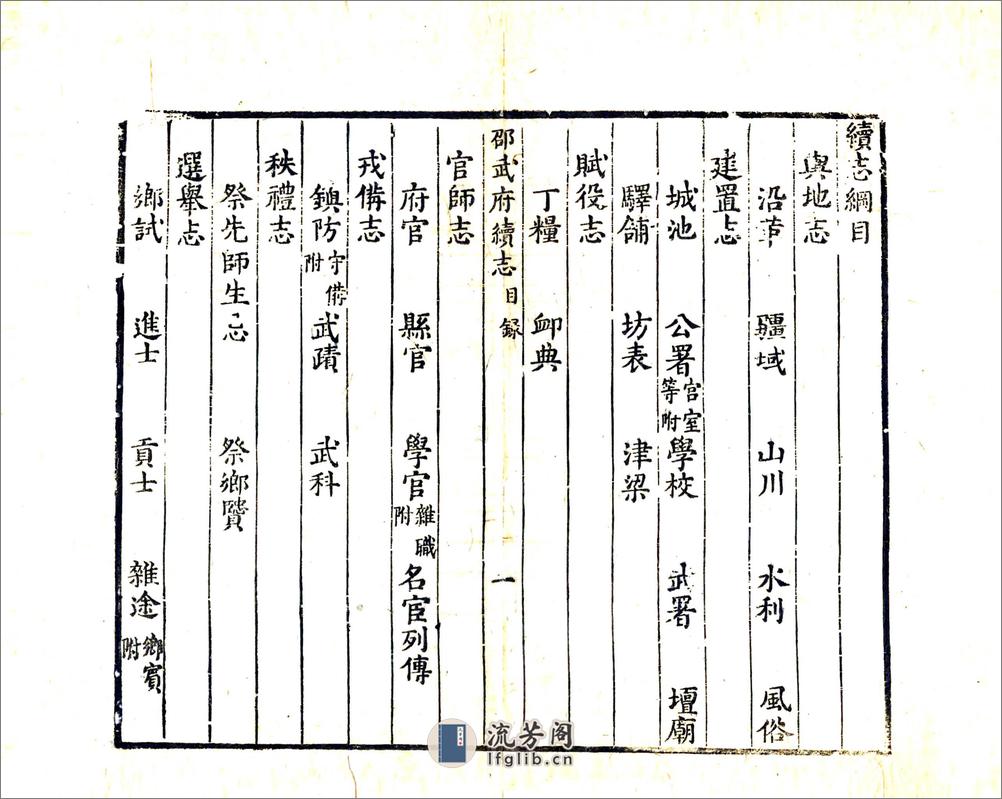 續志綱目
輿地志
沿革 疆域 山川 水利 風俗
建置志
城池 公署宮室等附 學校 武署 壇廟
驛鋪 坊表 津梁
賦役志
丁糧 卹典
邵武府續志 目錄 一
官師志
府官 縣官 學官雜職附 名宦列傳
戎備志
鎮防守備附 武蹟 武科
秩禮志
祭先師生忌 祭鄉贒
選舉志
鄉試 進士 貢士 雜途鄉賓附
流芳阁
lfglib.cn